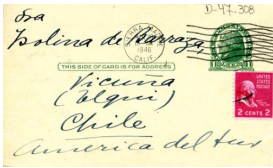 D-47.308
Sra
Isolina de Barraza,
1946
CALIF.
THIS SIDE OF CARD IS FOR ADDRESS
Vicuña
(Elqui)
Chile
America del sur
UNITED STATES
POSTAGE
2 CENTS 2